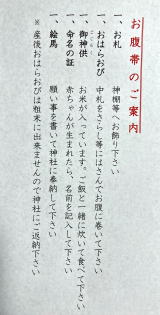 お腹帯のご案内
一、お札　神棚等へお飾り下さい
一、おはらおび　中札をさらし等にはさんでお腹に巻いて下さい
一、御神供　お米が入っています。ご飯と一緒に炊いて食べて下さい
一、命名の証　赤ちゃんが生まれたら、名前を記入して下さい
一、絵馬　願い事を書いて神社に奉納して下さい
※　産後おはらおびは粗末に出来ませんので神社にご返納下さい